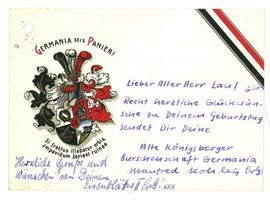 GERMANIA SEIS PANIER!
Si fractus illabatur orbis
impavidum ferient ruinae
Lieber Alter Herr Lau!
Recht herzliche Glückwün-
sche zu Deinem Geburtstag
sendet Dir Deine
Alte Königsberger
Burschenschaft Germania
Manfred
Herzliche Grüße und
Wünsche von Deinem
xxx